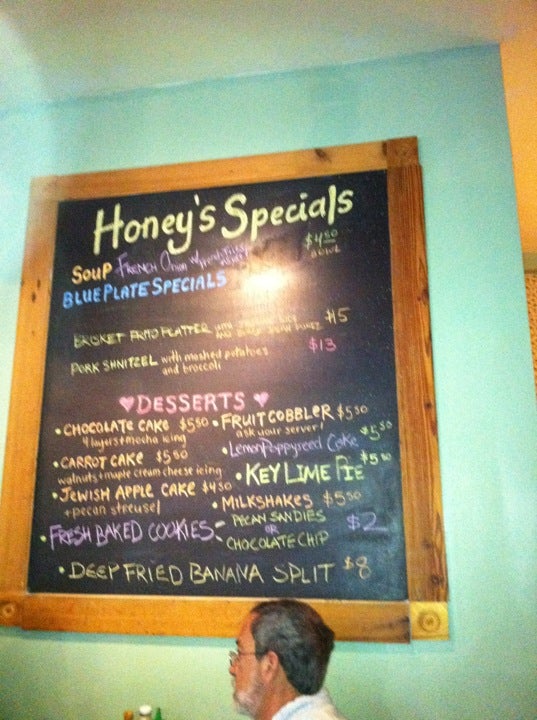 Honey's Specials
SOUP FRENCH Onion $4.50 BOWL
BLUE PLATE SPECIALS
BRISKET PLATTER with $15
PORK SHNITZEL with mashed potatoes and broccoli $13
♥DESSERTS♥
• CHOCOLATE CAKE $5.50
4 layers + mocha icing
• CARROT CAKE $5.50
walnuts + maple cream cheese icing
• JEWISH APPLE CAKE $4.50
+ pecan streusel
• FRUIT COBBLER $5.50
ask your server!
• Lemon Poppyseed Cake $5.50
• KEY LIME PIE $5.50
• MILKSHAKES $5.50
• FRESH BAKED COOKIES - PECAN SANDIES OR CHOCOLATE CHIP $2
• DEEP FRIED BANANA SPLIT $8